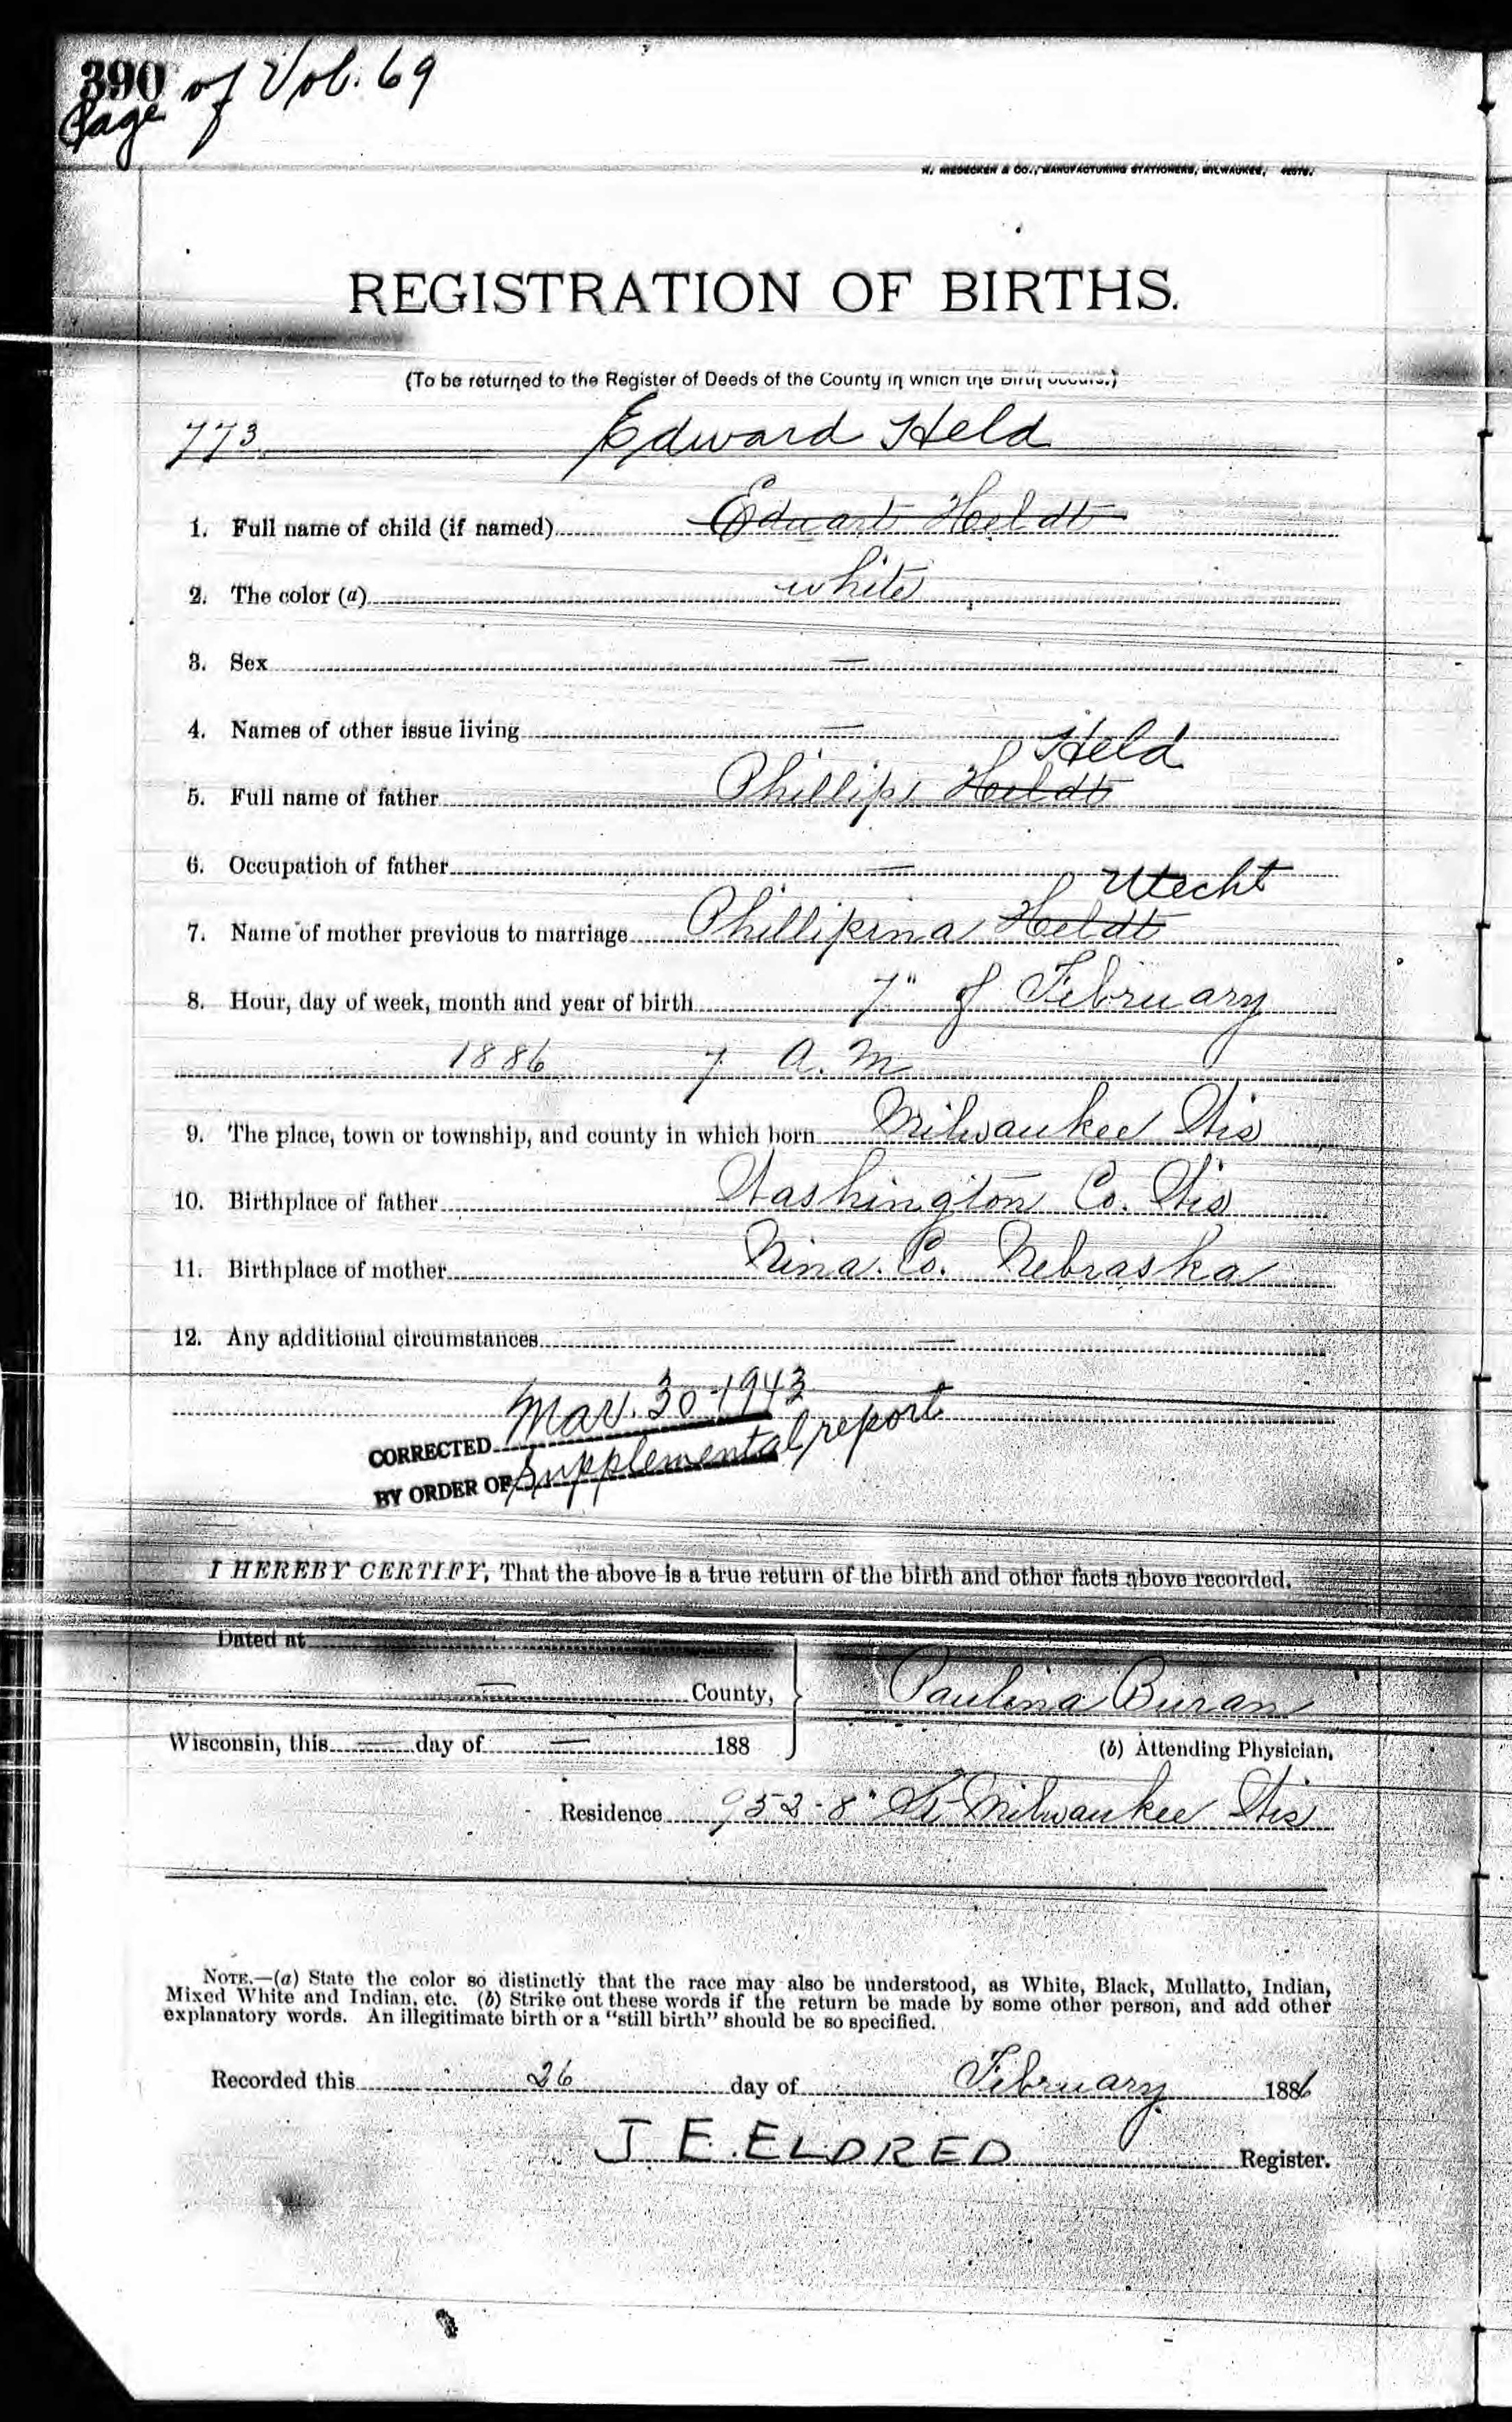 390
Page of Vol. 69
REGISTRATION OF BIRTHS.
(To be returned to the Register of Deeds of the County in which the birth occurs.)
773. Edward Held
1. Full name of child (if named) Eduart Heldt
2. The color (a) white
3. Sex —
4. Names of other issue living —
Held
5. Full name of father Phillipi Heldt
6. Occupation of father —
Utecht
7. Name of mother previous to marriage Phillipina Heldt
8. Hour, day of week, month and year of birth 7" of February
1886 7 A. M
9. The place, town or township, and county in which born Milwaukee Wis
10. Birthplace of father Washington Co. Wis
11. Birthplace of mother Co. Nebraska
12. Any additional circumstances —
CORRECTED Mar. 30-1943
BY ORDER OF Supplemental report
I HEREBY CERTIFY, That the above is a true return of the birth and other facts above recorded.
Dated at
— County,
Paulina Buran
Wisconsin, this — day of — 188
(b) Attending Physician,
Residence 952-8" St Milwaukee Wis
NOTE.—(a) State the color so distinctly that the race may also be understood, as White, Black, Mullatto, Indian,
Mixed White and Indian, etc. (b) Strike out these words if the return be made by some other person, and add other
explanatory words. An illegitimate birth or a "still birth" should be so specified.
Recorded this 26 day of February 1886
J. E. ELDRED Register.